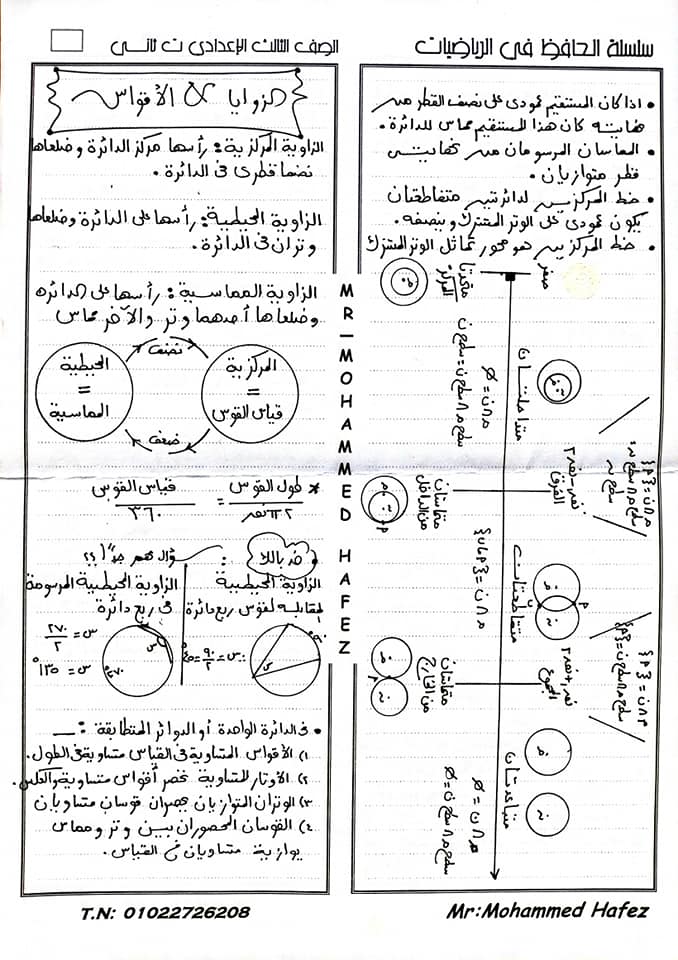 سلسلة الحافظ فى الرياضيات
الصف الثالث الإعدادى ت ثانى
• اذا كان المستقيم عمودى على نصف القطر من
نهايته كان هذا المستقيم مماس للدائرة.
• المماسان المرسومان من نهايتى
قطر متوازيان.
• خط المركزين لدائرتين متقاطعتان
يكون عمودى على الوتر المشترك وينصفه.
• خط المركزين هو محور تماثل الوتر المشترك
صفر
متحدتا
المركز
متداخلتان
م∩ن = Ø
سطح م∩سطح ن = سطح ن
نق١-نق٢
الفرق
متماستان
من الداخل
م∩ن = {P}
سطح م∩سطح ن =
سطح ن
متقاطعتان
م∩ن = {P،ب}
نق١+نق٢
المجموع
متماستان
من الخارج
م∩ن = {P}
سطح م∩سطح ن = {P}
متباعدتان
م∩ن = Ø
سطح م∩سطح ن = Ø
الزوايا & الأقواس
الزاوية المركزية: رأسها مركز الدائرة وضلعاها
نصفا قطرى فى الدائرة.
الزاوية المحيطية: رأسها على الدائرة وضلعاها
وتران فى الدائرة.
الزاوية المماسية: رأسها على الدائرة
وضلعاها أحدهما وتر والآخر مماس
نصف
المركزية
=
قياس القوس
المحيطية
=
المماسية
ضعف
* طول القوس / ٢πنق = قياس القوس / ٣٦٠
• خد بالك:
سؤال مهم جداً (؟؟
الزاوية المحيطية
المقابله لقوس ربع دائرة
س = ٩٠/٢ = ٤٥°
س
٩٠°
الزاوية المحيطية المرسومة
فى ربع دائرة
س = ٢٧٠/٢
س = ١٣٥°
س
٢٧٠°
• فى الدائرة الواحدة أو الدوائر المتطابقة:ــ
١) الأقواس المتساوية فى القياس متساوية فى الطول.
٢) الأوتار المتساوية تحصر أقواس متساوية والعكس.
٣) الوتران المتوازيان يحصران قوسان متساويان
٤) القوسان المحصوران بين وتر ومماس
يوازيه متساويان فى القياس.
MR–MOHAMMED HAFEZ
T.N: 01022726208
Mr:Mohammed Hafez